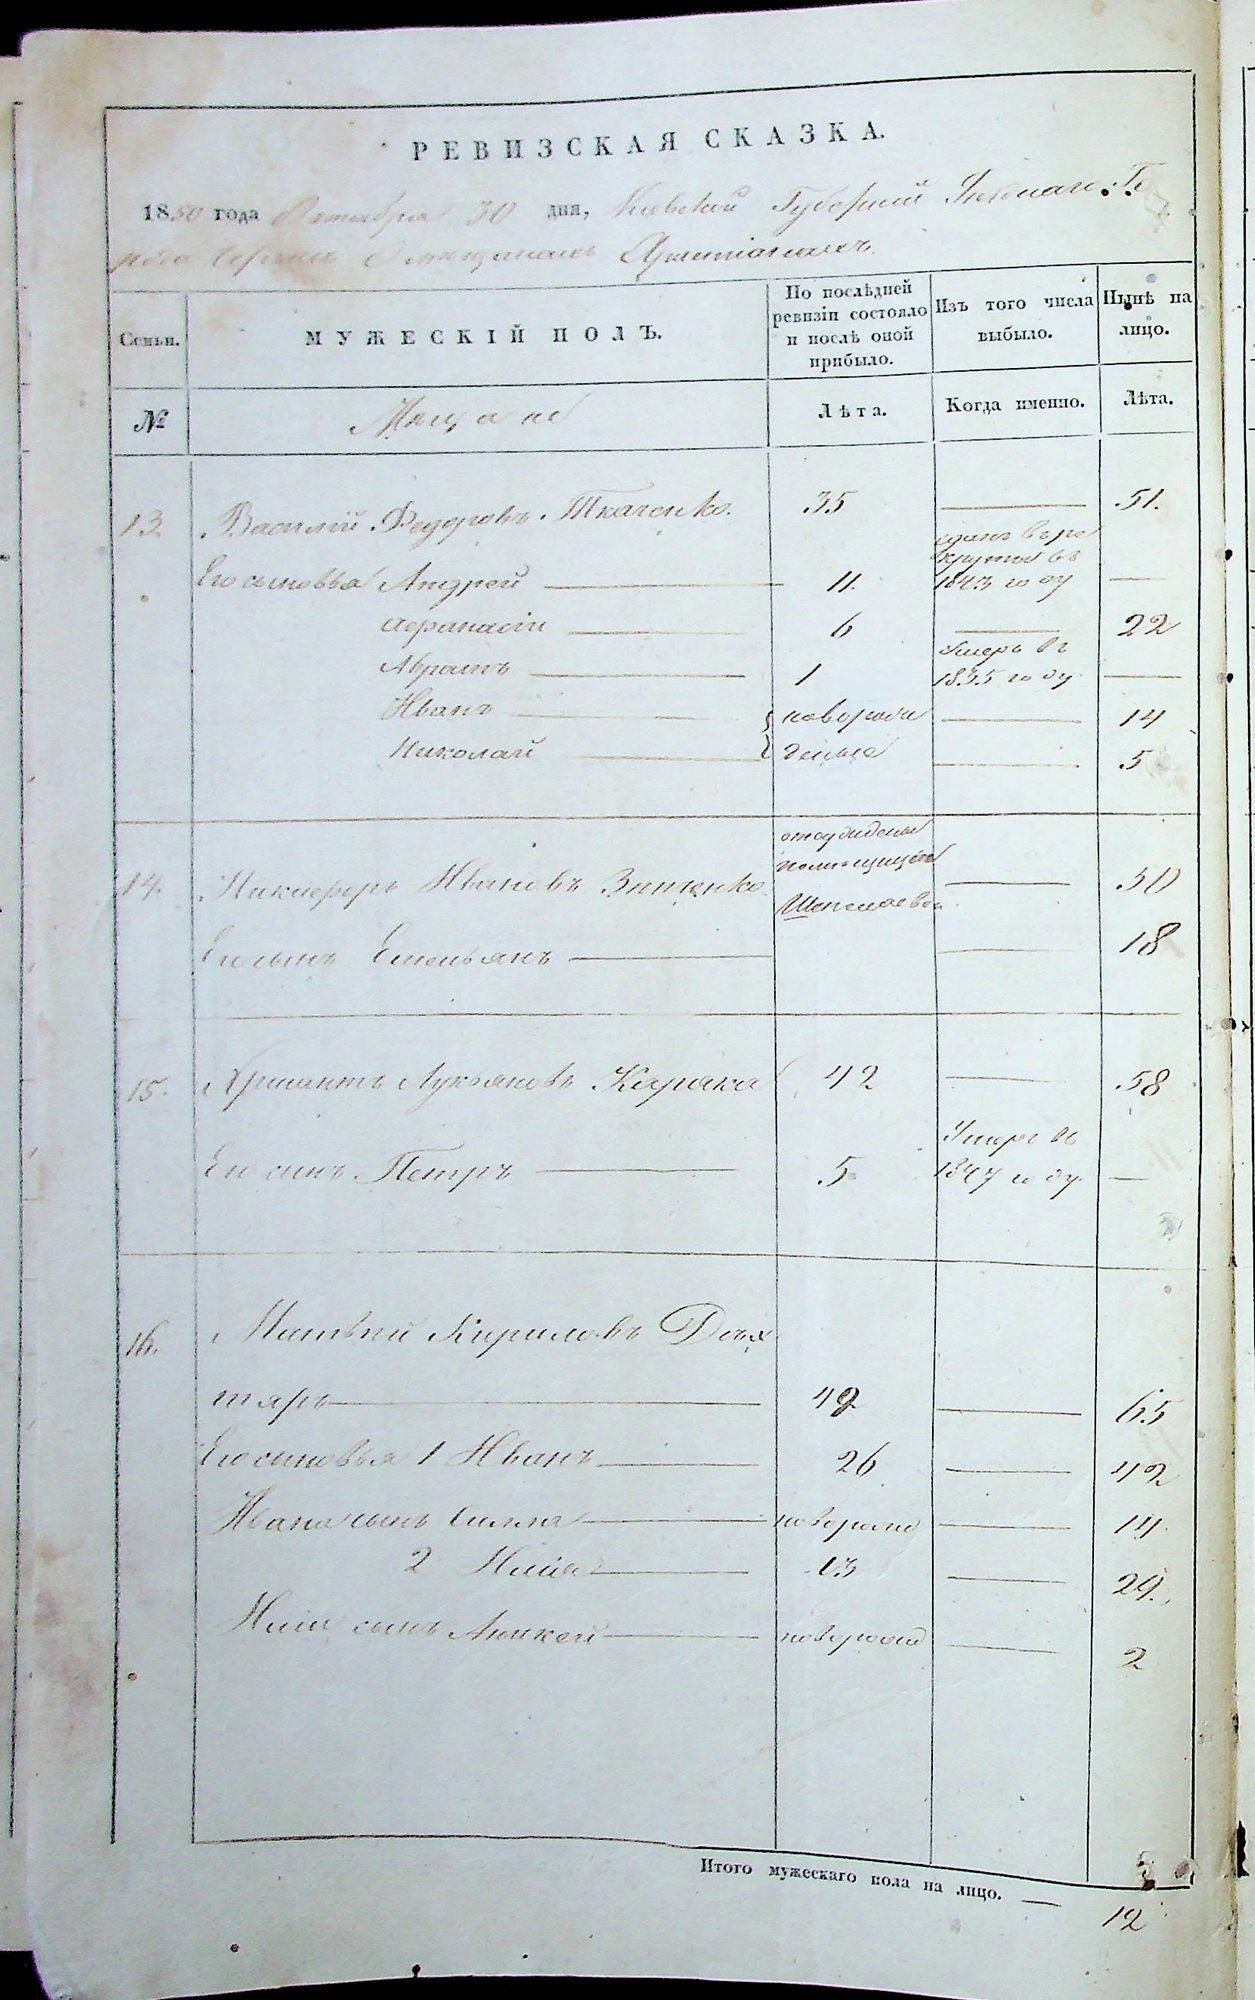 РЕВИЗСКАЯ СКАЗКА.
1850 года Октября 30 дня, Киевской Губернии Уезднаго Го
рода Черкас о мещанах Христианах.
Семьи.
МУЖЕСКІЙ ПОЛЪ.
По послѣдней ревизіи состояло и послѣ оной прибыло.
Изъ того числа выбыло.
Нынѣ на лицо.
№
Мещане
Лѣта.
Когда именно.
Лѣта.
13. Василій Федоровъ Ткаченко. 35 — 51.
Его сыновья Андрей — 11. сданъ въ рекруты въ 1843 году —
Афанасій — 6 — 22
Аврамъ — 1 Умеръ въ 1835 году —
Иванъ — новорож — 14
Николай — деные — 5
14. Никифоръ Ивановъ — 50
Его сынъ Емельянъ — — 18
15. Лукьяновъ Каряка 42 — 58
Его сынъ Петръ — 5 Умеръ въ 1847 году —
16. Матвей Кириловъ Дех
тяръ — 49 — 65
Его сыновья 1 Иванъ — 26 — 42
Ивана сынъ — новорожд — 14
2 Илья — 13 — 29.
Ильи сынъ Аникей — новорожд — 2
Итого мужескаго пола на лицо. — 12